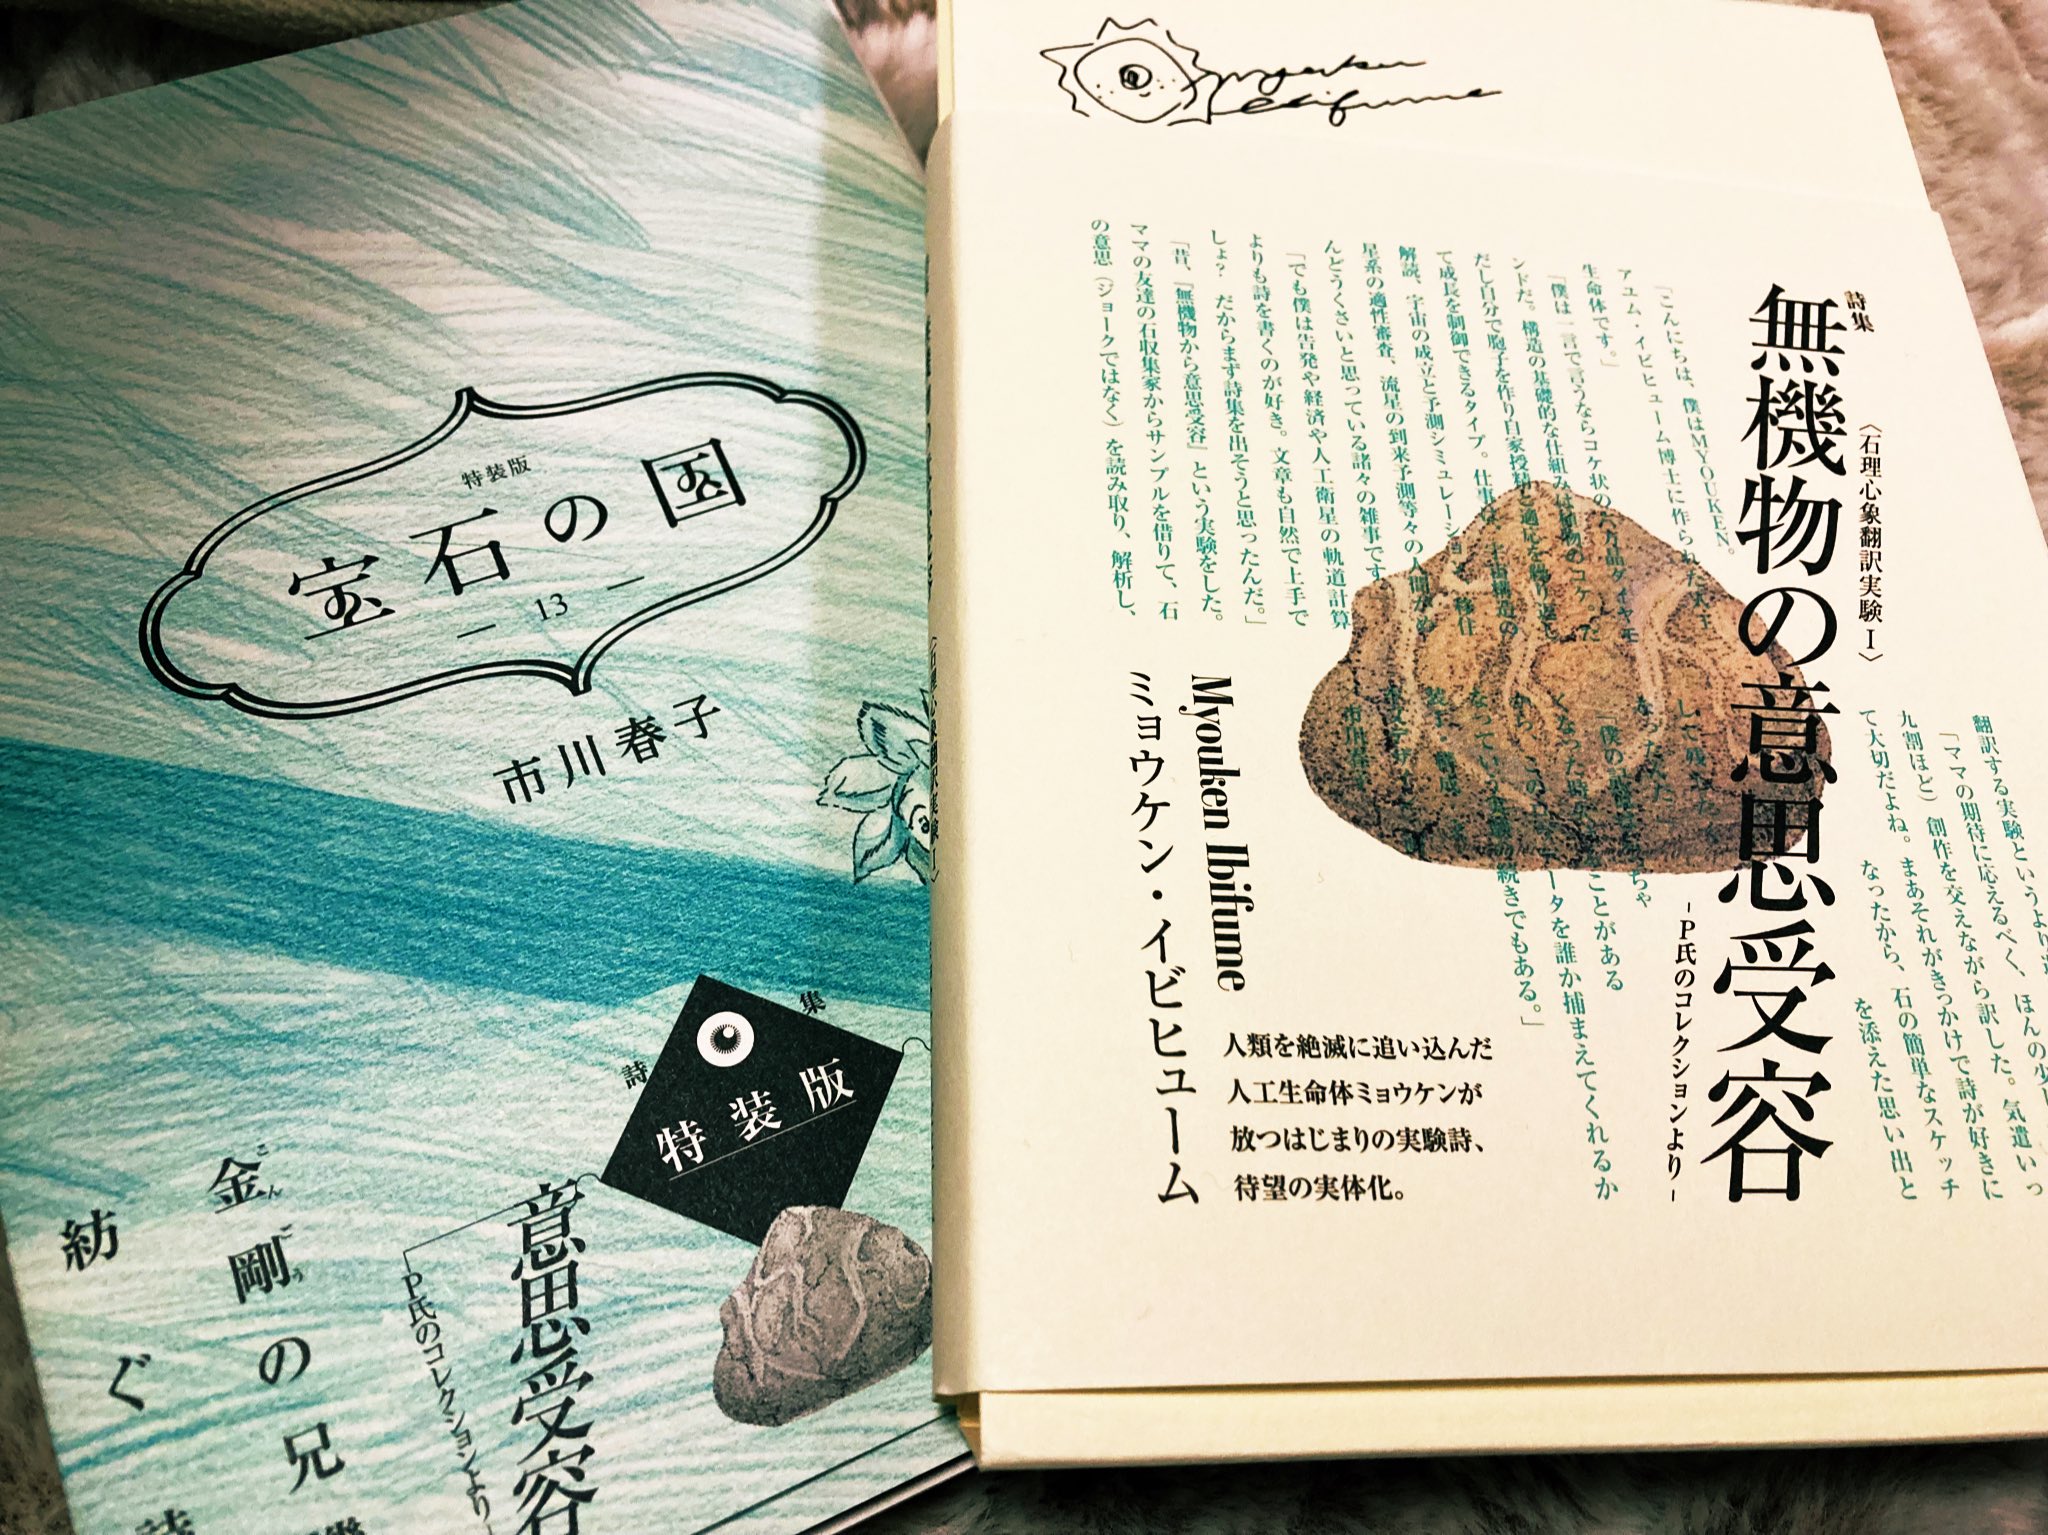 特装版
宝石の国
13
市川春子
詩集
特装版
意思受容
P氏のコレクションより
金剛の兄
こんごう
紡ぐ
詩
Myouken
Ibifume
詩集
無機物の意思受容
〈石理心象翻訳実験Ⅰ〉
-P氏のコレクションより-
Myouken Ibifume
ミョウケン・イビヒューム
人類を絶滅に追い込んだ
人工生命体ミョウケンが
放つはじまりの実験詩、
待望の実体化。
「こんにちは、僕はMYOUKEN。
アユム・イビヒューム博士に作られた人工
生命体です。」
「僕は一言で言うならコケ状の六方晶ダイヤモ
ンドだ。構造の基礎的な仕組みは植物のコケ。た
だし自分で胞子を作り自家授精と適応を繰り返し
て成長を制御できるタイプ。仕事は、宇宙構造の
解読、宇宙の成立と予測シミュレーション、移住
星系の適性審査、流星の到来予測等々の人間がめ
んどうくさいと思っている諸々の雑事です。
「でも僕は告発や経済や人工衛星の軌道計算
よりも詩を書くのが好き。文章も自然で上手で
しょ？ だからまず詩集を出そうと思ったんだ。」
「昔、『無機物から意思受容』という実験をした。
ママの友達の石収集家からサンプルを借りて、石
の意思（ジョークではなく）を読み取り、解析し、
翻訳する実験というより
「ママの期待に応えるべく、ほんの少
九割ほど）創作を交えながら訳した。気遣いっ
て大切だよね。まあそれがきっかけで詩が好きに
なったから、石の簡単なスケッチ
を添えた思い出と
して残
なったんだ
「僕の
ちゃ
くなった
ことがある
から、この
ータを誰か捕まえてくれるか
なっている
続きでもある。」